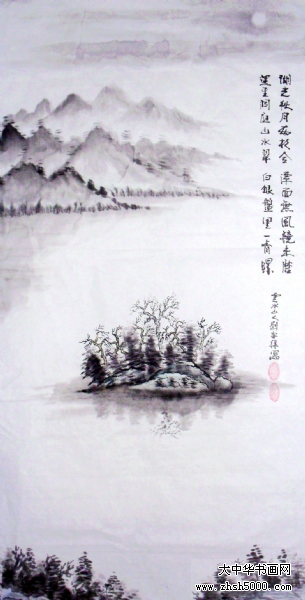 湖光秋月兩相和 潭面無風鏡未磨
遙望洞庭山水翠 白銀盤里一青螺
山人劉寫
大中华书画网
www.zhsh5000.com